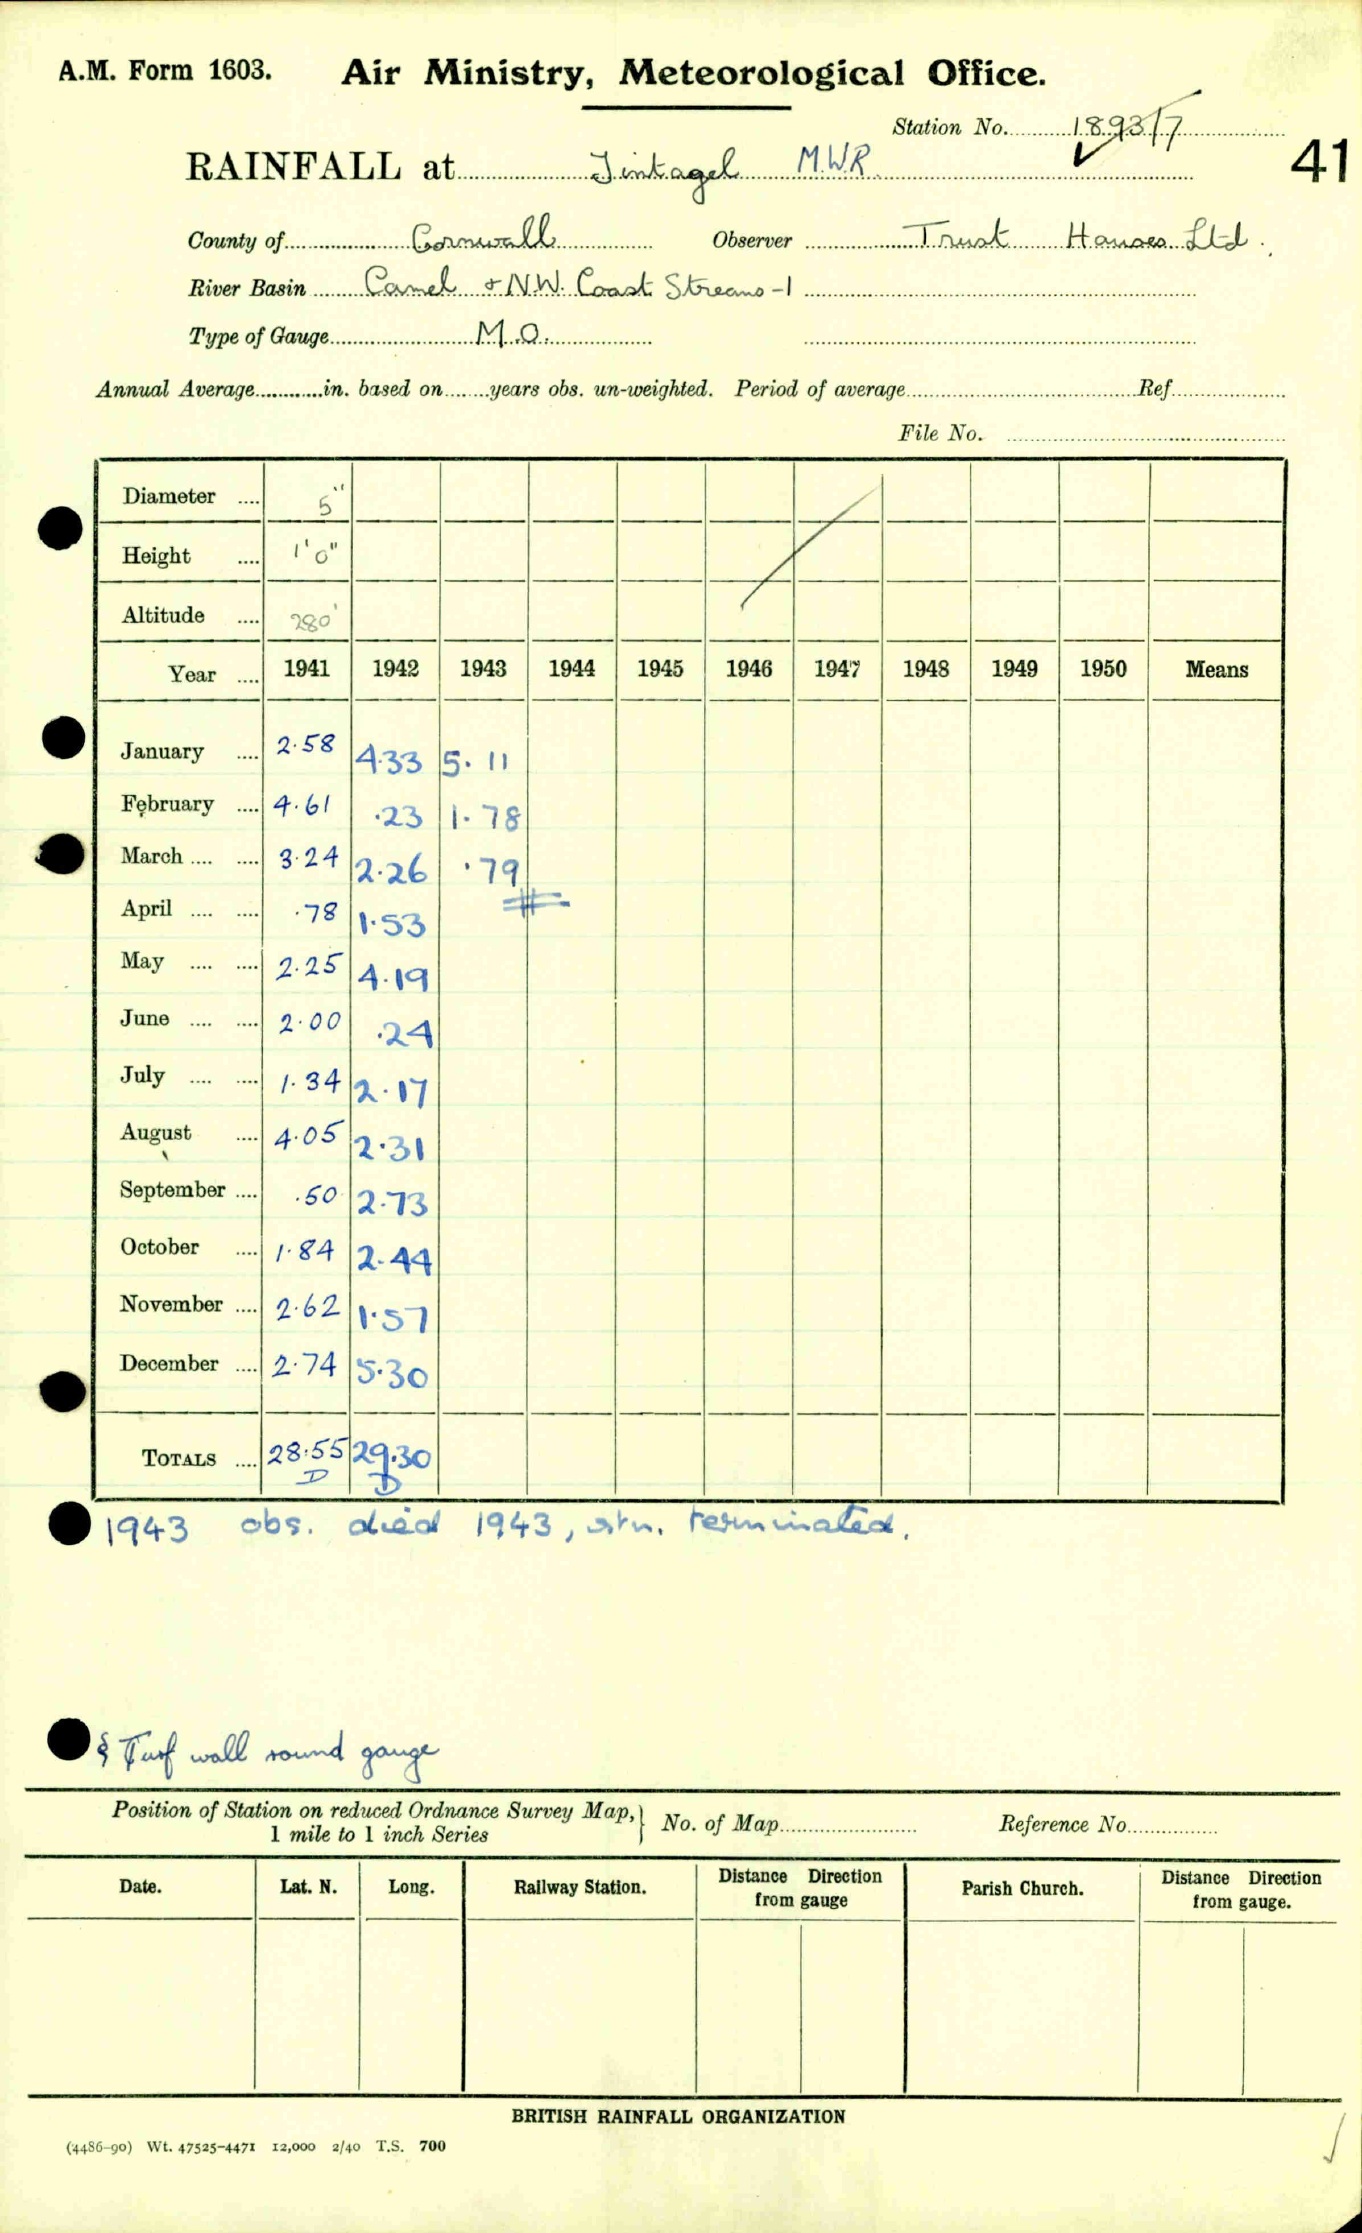 A.M. Form 1603. Air Ministry, Meteorological Office.
Station No. 1893/7
41
RAINFALL at Tintagel M.W.R.
County of Cornwall Observer Trust Houses Ltd.
River Basin Camel & N.W. Coast Streams -1
Type of Gauge M.O.
Annual Average in. based on years obs. un-weighted. Period of average Ref.
File No.
Diameter .... 5"
Height .... 1'0"
Altitude .... 280'
Year .... 1941 1942 1943 1944 1945 1946 1947 1948 1949 1950 Means
January .... 2.58 4.33 5.11
February .... 4.61 .23 1.78
March .... .... 3.24 2.26 .79
April .... .... .78 1.53
May .... .... 2.25 4.19
June .... .... 2.00 .24
July .... .... 1.34 2.17
August .... 4.05 2.31
September .... .50 2.73
October .... 1.84 2.44
November .... 2.62 1.57
December .... 2.74 5.30
TOTALS .... 28.55 29.30
D D
1943 obs. died 1943, stn. terminated.
§ Turf wall round gauge
Position of Station on reduced Ordnance Survey Map,} No. of Map Reference No.
1 mile to 1 inch Series
Date. Lat. N. Long. Railway Station. Distance Direction from gauge Parish Church. Distance Direction from gauge.
BRITISH RAINFALL ORGANIZATION
(4486-90) Wt. 47525-4471 12,000 2/40 T.S. 700